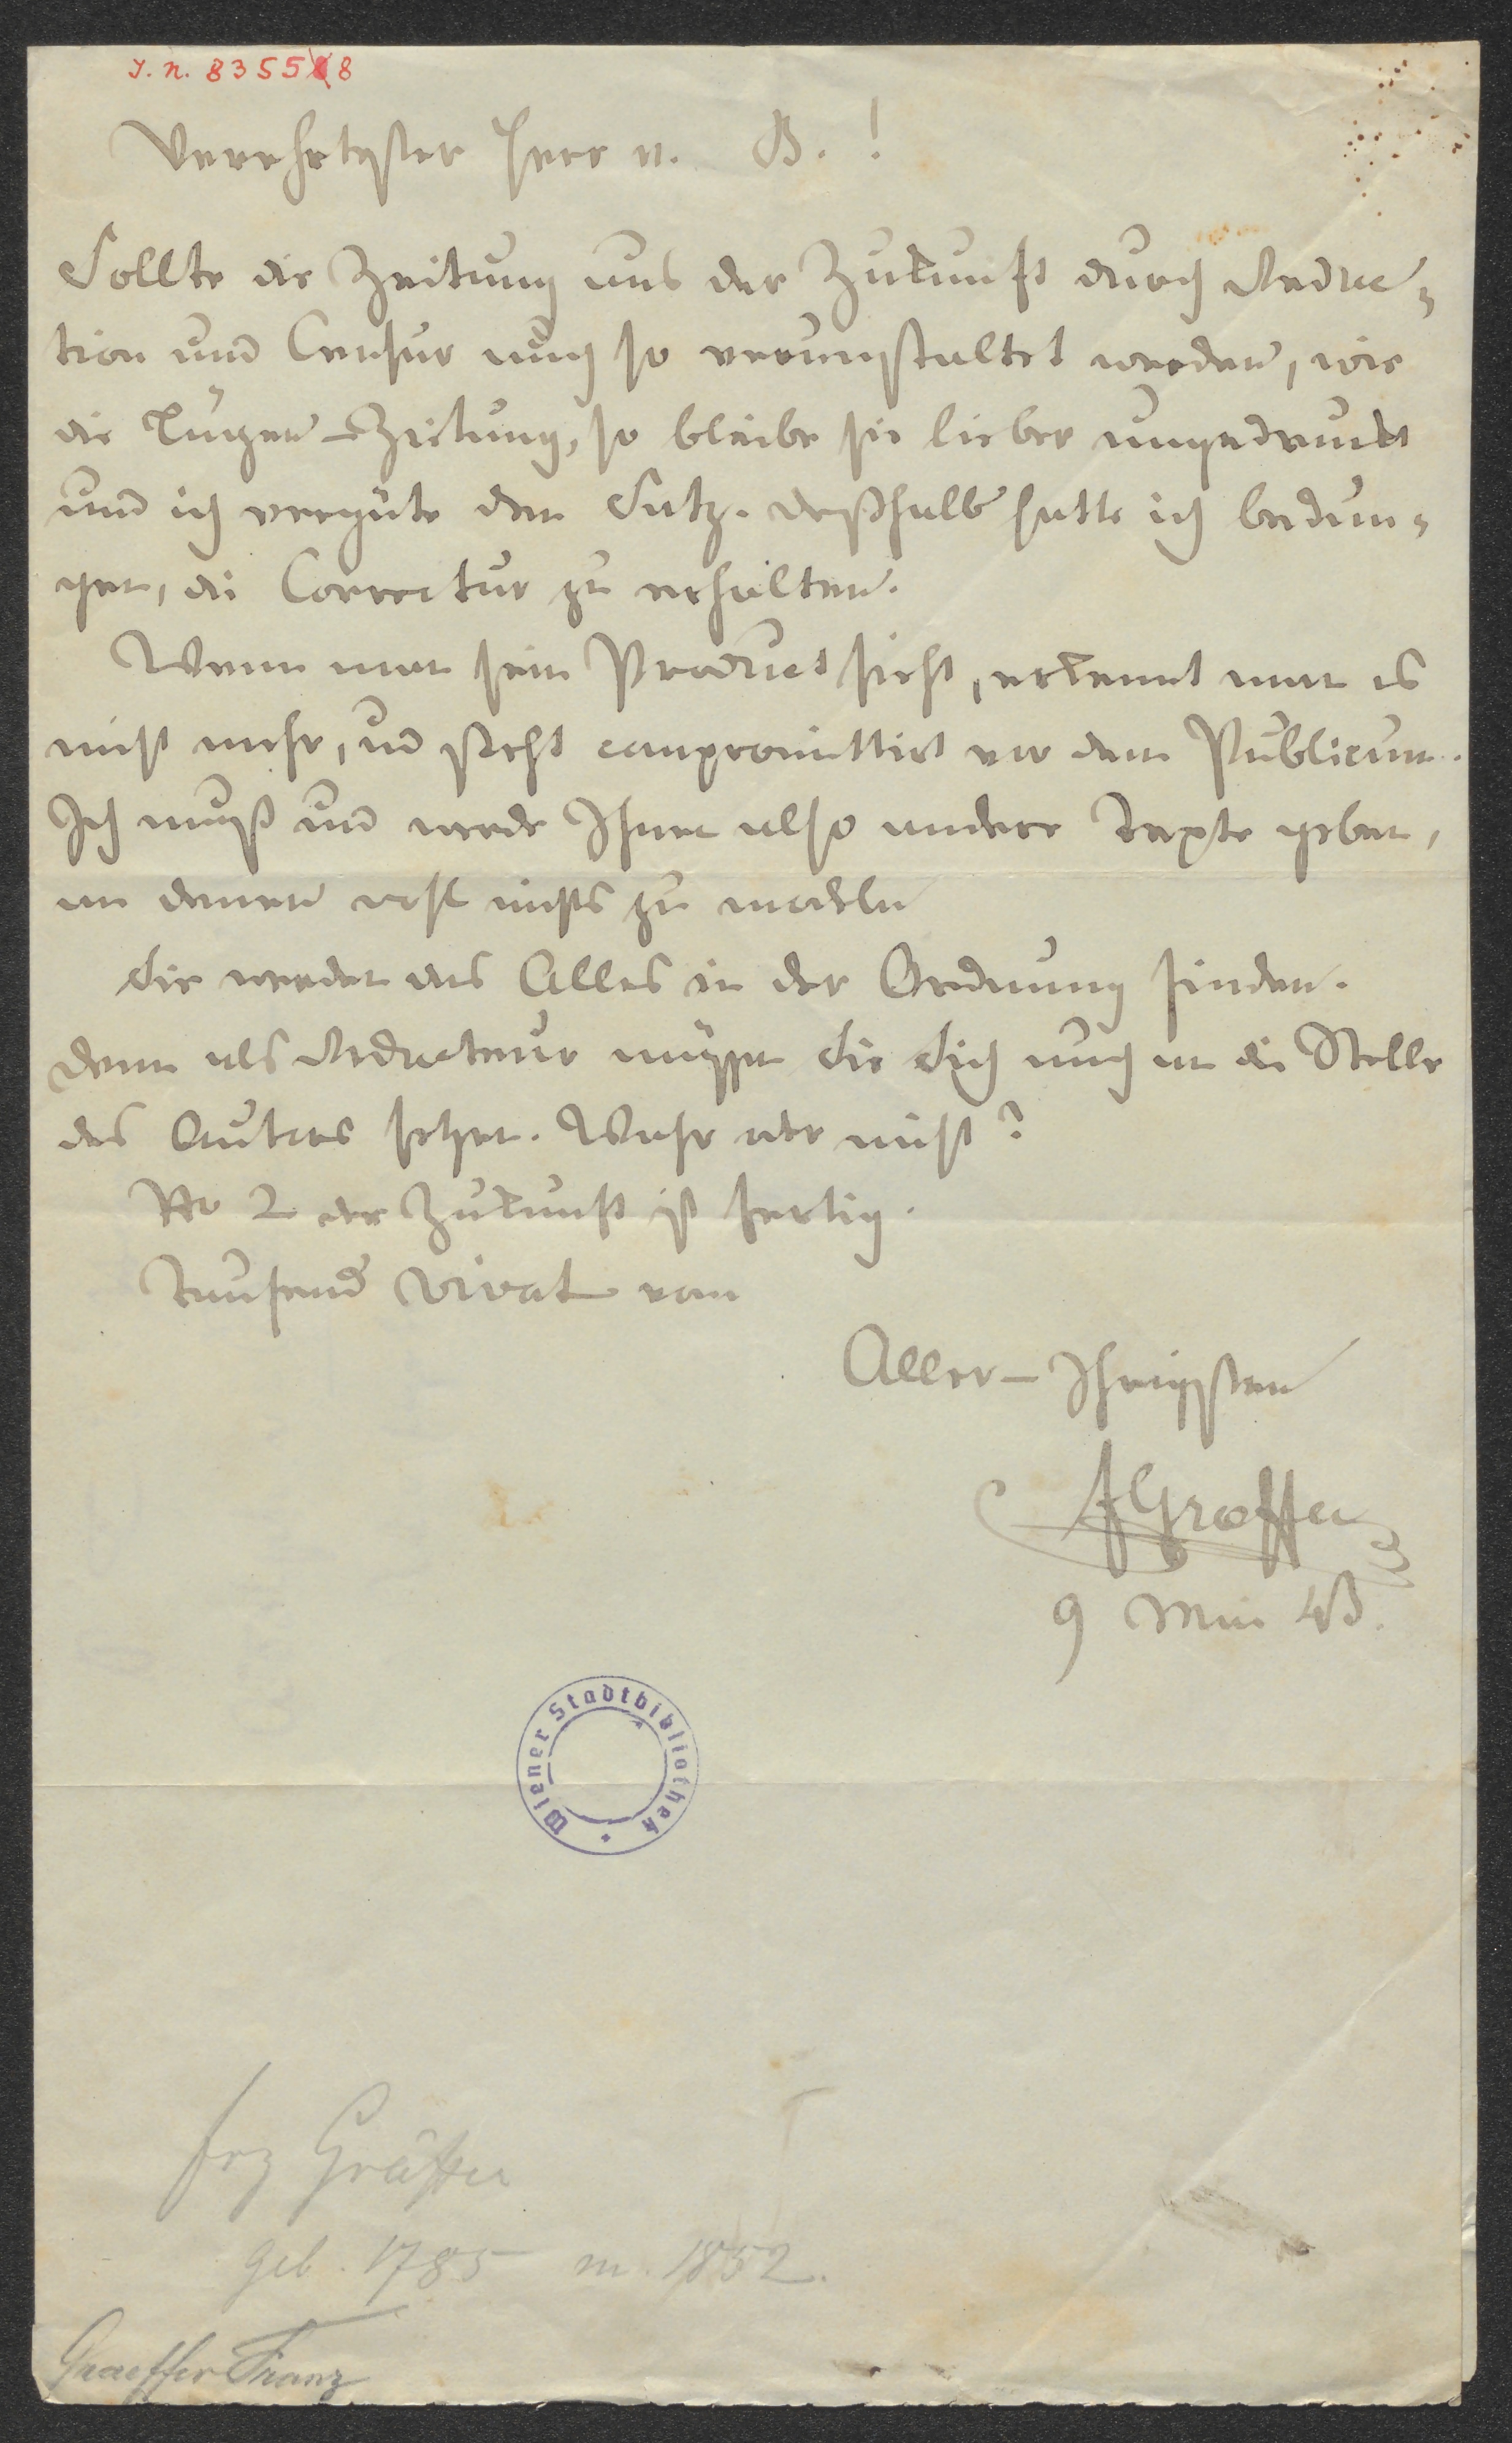 I. N. 83558
Verehrtester Herr v. B.!
Sollte die Zeitung aus der Zukunft durch Redac-
tion und Censur auch so verunstaltet werden, wie
die Lügen-Zeitung, so bleibe sie lieber ungedruckt
und ich vergüte den Satz. Deßhalb hatte ich bedun-
gen, die Correctur zu erhalten.
Wenn man sein Product sieht, erkennt man es
nicht mehr, und steht compromittirt vor dem Publicum.
Ich muß und werde Ihnen also andere Texte geben,
an denen nichts zu modeln
Sie werden das Alles in der Ordnung finden.
Denn als Redacteur müssen Sie Sich auch an die Stelle
des Autors setzen. Wahr oder nicht?
No 2 der Zukunft ist fertig.
Tausend Vivat vom
Aller-Ihrigsten
FGräffer
9 Mai
Wiener Stadtbibliothek
Frz Gräffer
geb. 1785 m. 1852.
Graeffer Franz